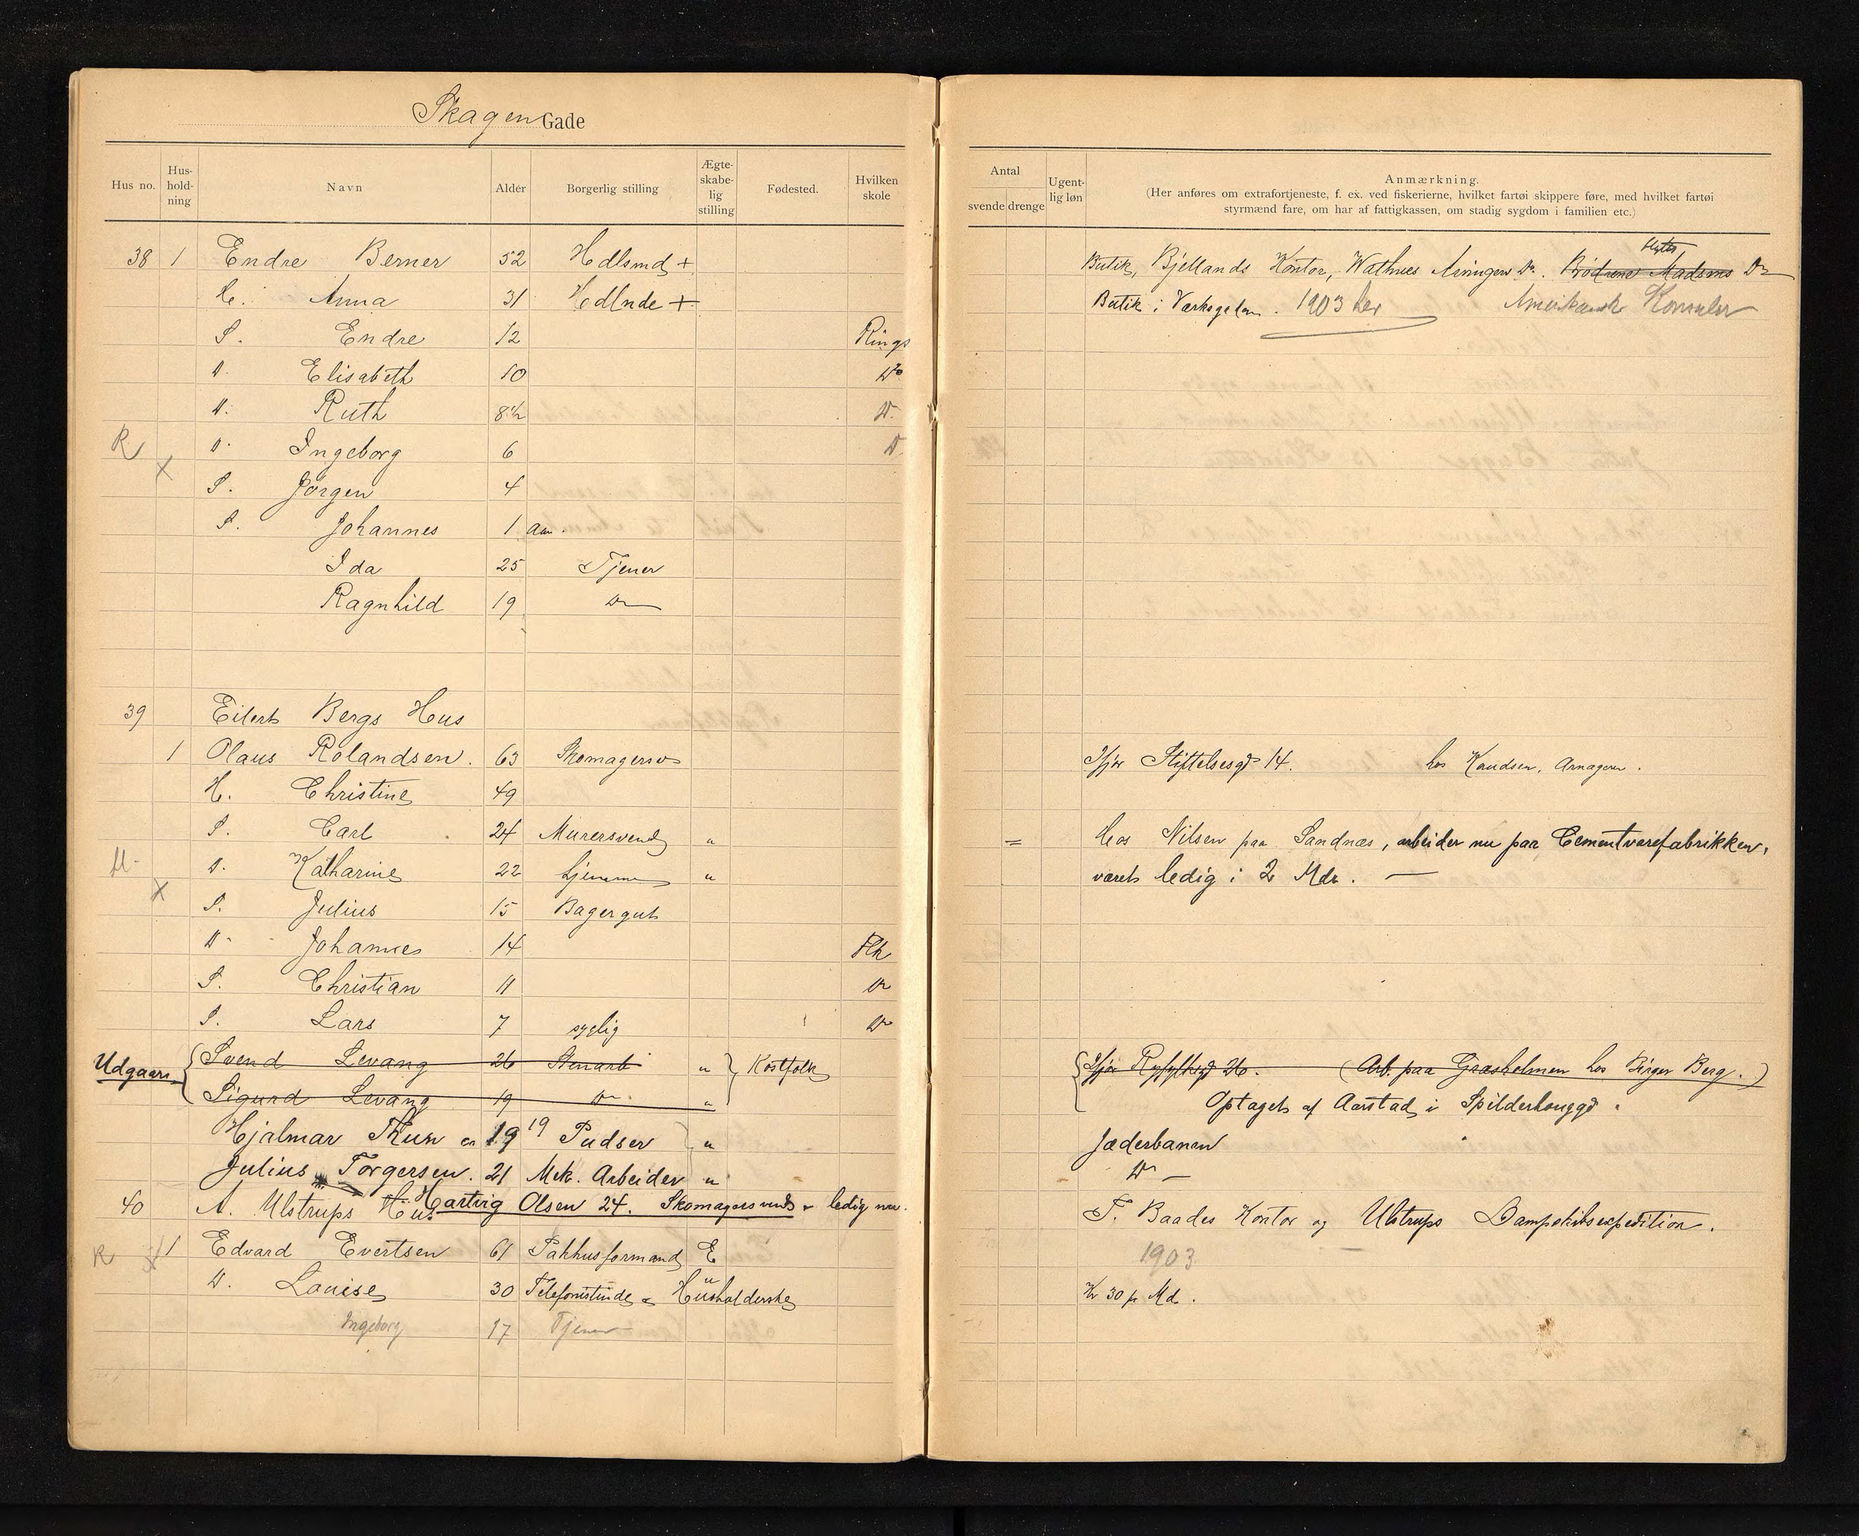 Skagen Gade
Hus no. Hus-hold-ning Navn Alder Borgerlig stilling Ægte-skabe-lig stilling Fødested. Hvilken skole
38 1 Endre Berner 52 Hdlsmd +
H. Anna 31 Hdlnde +
S. Endre 12 Rings
D. Elisabeth 10 Do
D. Ruth 8½ D.
R D. Ingeborg 6 D.
X S. Jørgen 4
S. Johannes 1 aar.
Ida 25 Tjener
Ragnhild 19 Do
39 Eilert Bergs Hus
1 Olaus Rolandsen. 63 Skomagersv
H. Christine 49
S. Carl 24 Murersvend "
M D. Katharine 22 hjemme "
X S. Julius 15 Bagergut
D. Johannes 14 Flk
S. Christian 11 Do
S. Lars 7 syglig Do
Udgaar { Svend Levang 26 Stenarb " } Kostfolk
Sigurd Levang 19 Do "
Hjalmar Thun 19 19 Pudser "
Julius Torgersen. 21 Mek. Arbeider "
40 A. Ulstrups Hus Hartvig Olsen 24. Skomagersvend - ledig nu.
R 1 Edvard Evertsen 61 Pakhusformand E
D. Louise 30 Telefonistinde & Husholderske
Ingeborg 17 Tjener
Antal svende drenge Ugent-lig løn Anmærkning.
(Her anføres om extrafortjeneste, f. ex. ved fiskerierne, hvilket fartøi skippere føre, med hvilket fartøi
styrmænd fare, om har af fattigkassen, om stadig sygdom i familien etc.)
Butik, Bjellands Kontor, Wathnes Arvingers Do. Brødrene Madsens Do
Butik i Værksgaden. 1903 her Amerikansk Konsulat
Ifjor Stiftelsesgd 14. hos Knudsen, Arnageren.
= Hos Nilsen paa Sandnæs, arbeider nu paa Cementvarefabrikken,
været ledig i 2 Mdr. —
{ Ifjor Ryfylkegd 26. (Arb. paa Grasholmen hos Birger Berg.)
Optaget af Aarstad i Spilderhauggd.
Jæderbanen
Do —
T. Baades Kontor og Ulstrups Dampskibsexpedition.
1903
Kr 30 pr Md.